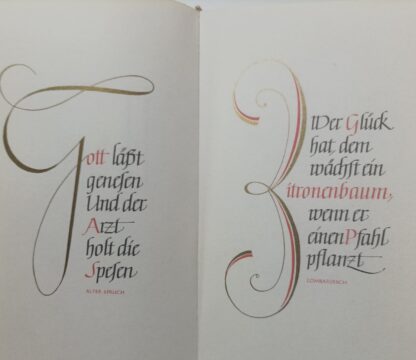 Gott läßt
genesen
Und der
Arzt
holt die
Spesen
ALTER SPRUCH
Wer Glück
hat, dem
wächst ein
Zitronenbaum,
wenn er
einen Pfahl
pflanzt
LOMBARDISCH